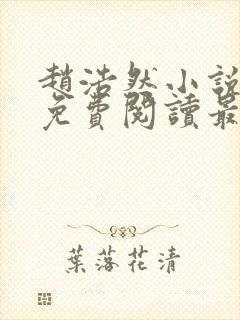 趙浩然小說
免費閱讀最
葉落花清